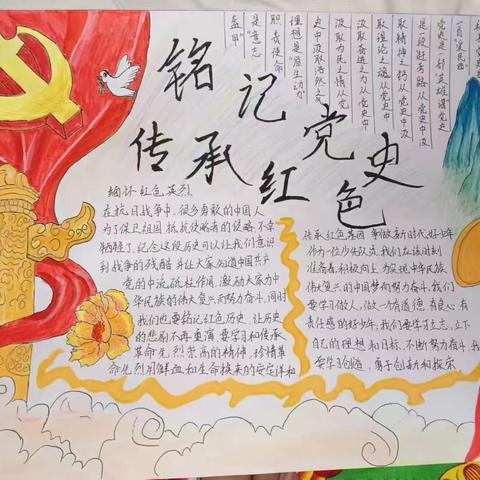 铭记党史
传承红色
一首“爱民曲”
党史是一部“英雄谱”党史
是一段赶考路从党史中汲
取精神之钙从党史中汲
取理论之魂从党史中
汲取奋进之力从党史中
汲取为民之情从党
史中汲取浩然之气
理想是“原生动力”
职责使命
是“意志
盔甲”
缅怀红色英烈
在抗日战争中,很多勇敢的中国人
为了保卫祖国 抵抗侵略者的侵略,不幸
牺牲了,纪念这段历史可以让我们意识
到战争的残酷 并让大家知道中国共产
党的中流砥柱作用,激励大家为中
华民族的伟大复兴而努力奋斗,同时
我们也要铭记红色历史,让历史
的悲剧不再重演,要学习和传承
革命先烈崇高的精神,珍惜革
命先烈用鲜血和生命换来的安定祥和
传承红色基因 争做新时代好少年
作为一位少先队员,我们应该时刻
准备着,积极向上,为实现中华民族
伟大复兴的中国梦而努力奋斗,我们
要学习做人,做一个有道德、有良心、有
责任感的好少年,我们要学习立志,立下
自己的理想和目标,不断努力奋斗,我
要学习创造,勇于创新和探索